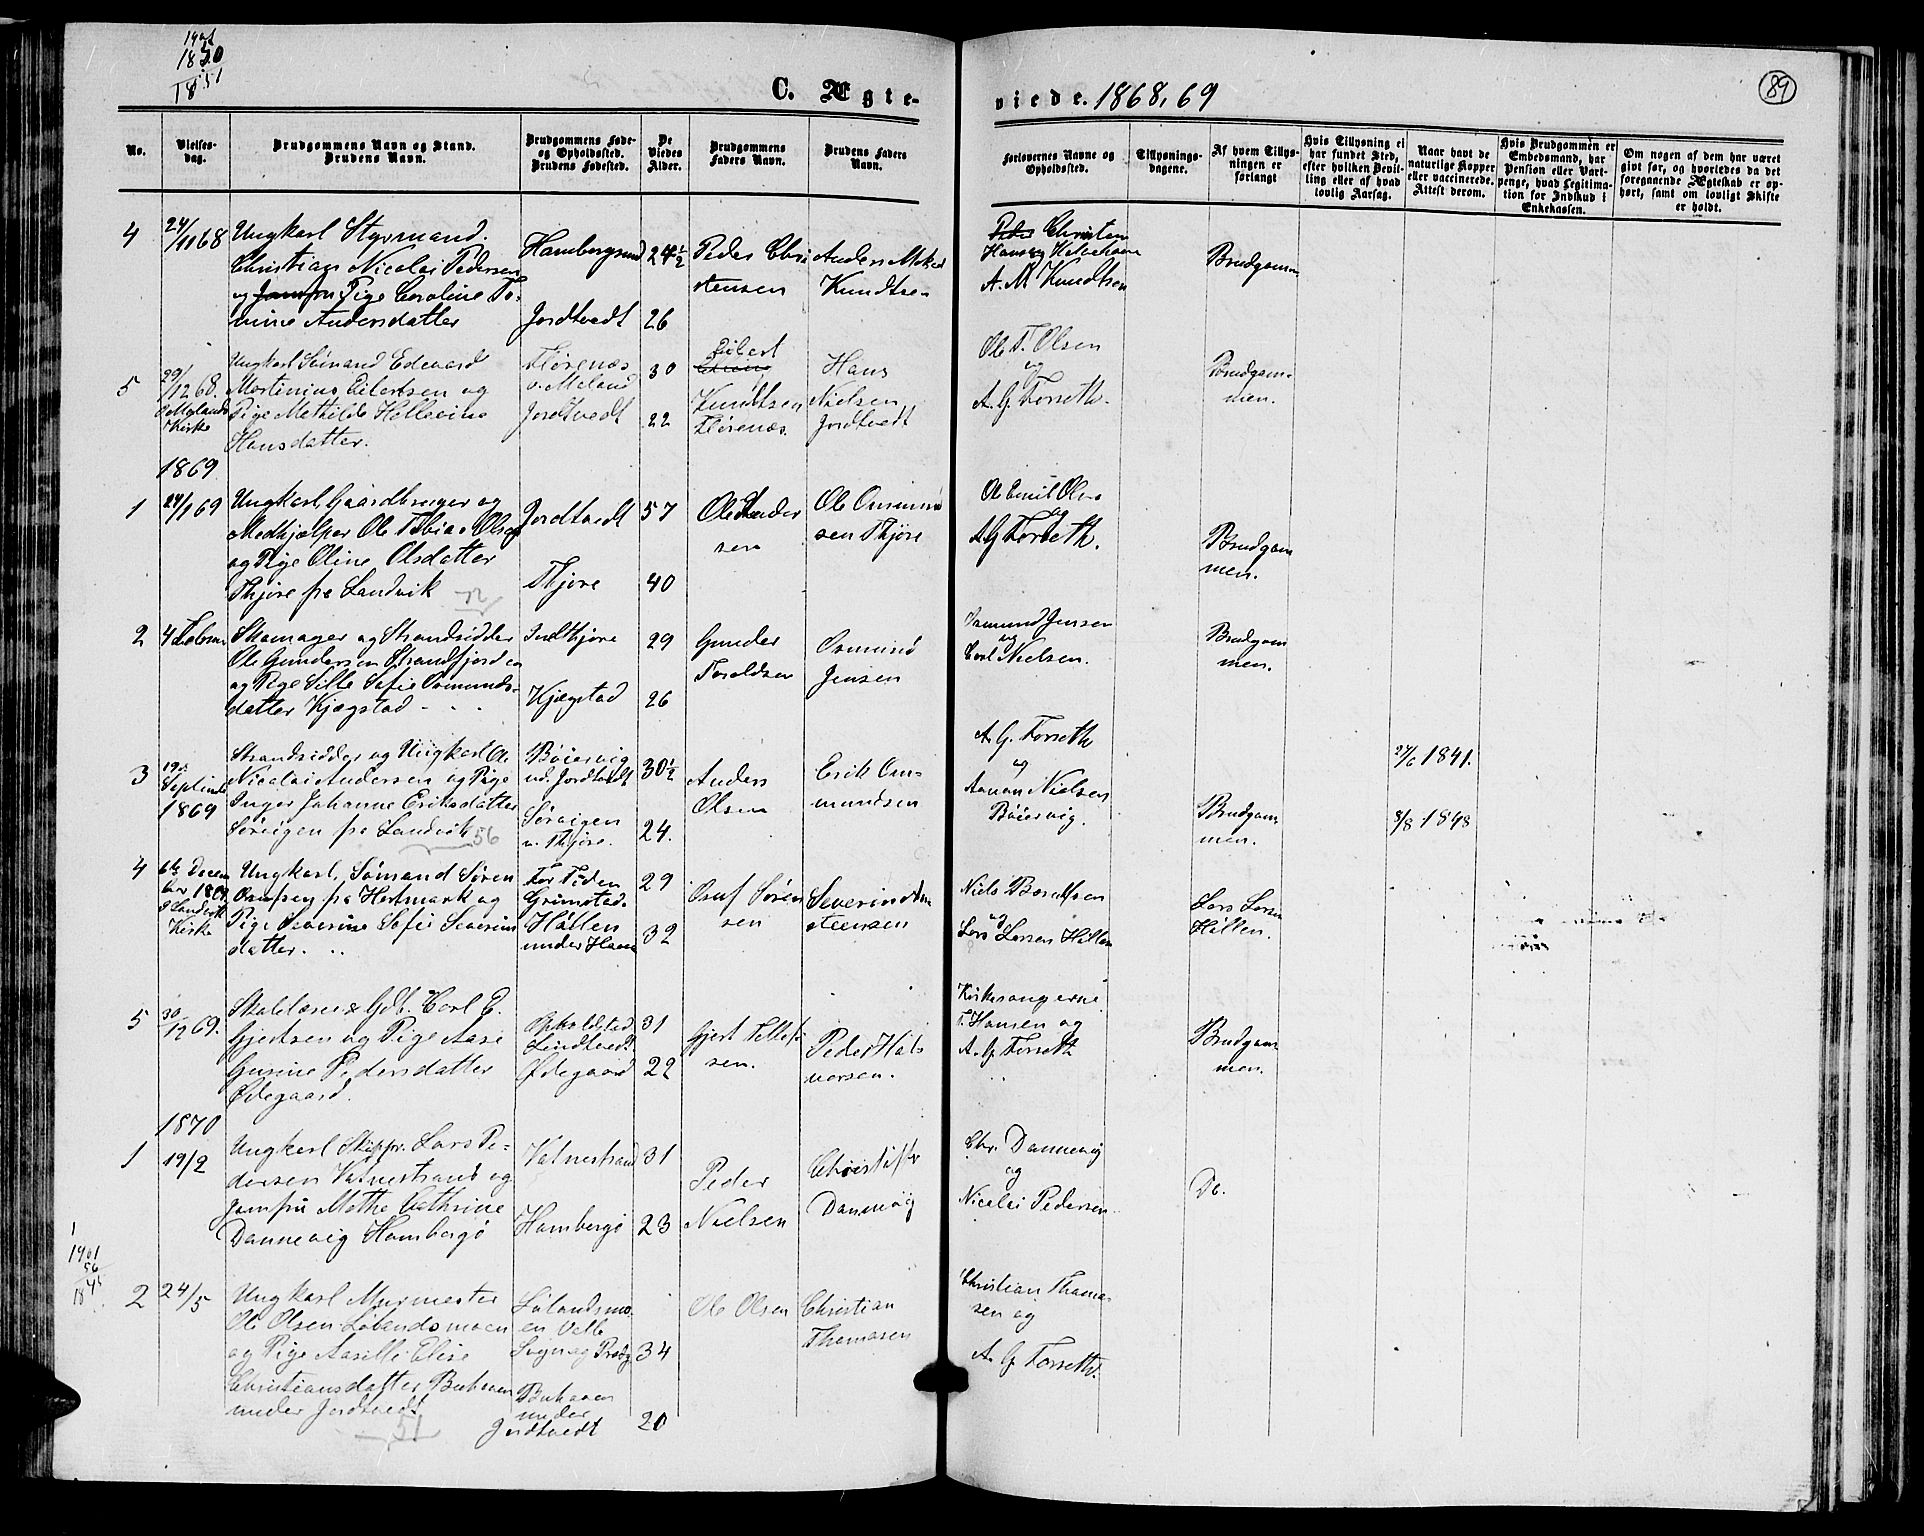 1901
1850
1851
C. Ægte-
viede. 1868, 69
89
No.
Vielses-
dag.
Brudgommens Navn og Stand.
Brudens Navn.
Brudgommens Føde-
og Opholdssted.
Brudens Fødested.
De
Viedes
Alder.
Brudgommens
Faders Navn.
Brudens Faders
Navn.
Forlovernes Navne og
Opholdssted.
Tillysnings-
dagene.
Af hvem Tillys-
ningen er
forlangt
Hvis Tillysning ei
har fundet Sted,
efter hvilken Bevil-
ling eller af hvad
lovlig Aarsag.
Naar havt de
naturlige Kopper
eller vaccinerede.
Attest derom.
Hvis Brudgommen er
Embedsmand, har
Pension eller Vart-
penge, hvad Legitima-
tion for Indskud i
Enkekassen.
Om nogen af dem har været
givt før, og hvorledes da det
foregaaende Ægteskab er op-
hørt, samt om lovligt Skifte
er holdt.
4
24/11 68
Ungkarl Styrmand.
Christian Nicolai Pedersen
og Jomfru Pige Caroline To-
mine Andersdatter
Hombergsund
Jordtvedt
24½
26
Peder Chri
stensen
Anders
Kundtsen
Peder Christen
Hansen
A. M Knudtsen
Brudgomm
5
29/12 68.
Kirke
Ungkarl Sømand Edevard
Martinius Eilertsen og
Pige Mathilde Hellevine
Hansdatter.
Florenæs
Jordtvedt
30
22
Eilert
Kundtsen
Florenæs.
Hans
Nielsen
Jordtvedt
Ole T. Olsen
og
A. G. Forseth.
Brudgom-
men.
1869
1
24/1 69
Ungkarl, Gaardbruger og
Medhjælper Ole Tobias Olsen
og Pige Oline Olsdatter
Thjøre fra Landvik
Jordtvedt
Thjøre
57
40
Ole
sen
Ole Osmund
sen Thjøre
Ole Emil Olsen
og
A G Forseth.
Brudgom
men.
2
4 Februar
Skomager og Strandsidder
Ole Gundersen Strandfjorden
og Pige Sille Sofie Osmunds-
datter Kjægstad
Indthjøre
Kjægstad
29
26
Gunder
Toraldsen
Osmund
Jensen
Osmund Jensen
og
Carl Nielsen.
Brudgom
men.
3
19de
Septemb
1869
Strandsidder og Ungkarl Ole
Nicolai Andersen og Pige
Inger Johanne Eriksdatter
Sørvigen fra Landvik
56
Bøiervig
ud. Jordtvedt
Sørvigen
u. Thjøre.
30½
24.
Anders
Olsen
Erik Os-
mundsen
A. G. Forseth
og
Aanon Nielsen
Bøiervig.
Brudgom
men.
27/6 1841.
8/8 1848
4
6te Decem
ber 1869
I Landvik
Kirke
Ungkarl, Sømand Søren
Osufsen fra Hertmark og
Pige Severine Sofie Severin
datter.
For Tiden
Grimstad.
Hållen
under Haave
29
32
Osuf Søren
sen
Severin
steensen
Niels Berntsen
og
Lars Larsen Hållen
Lars Larsen
Hållen.
5
30/12 69.
Skolelærer & Gdb. Carl E.
Gjertsen og Pige Aase
Gurine Pedersdatter
Ødegaard.
Opholdstad
Lindtvedt
Ødegaard
31
22
Gjert Tellef
sen.
Peder Hal
vorsen.
Kirkesangerne
T. Hansen og
A. G. Forseth
Brudgom
men.
1870
1
19/2
Ungkarl Skippr. Lars Pe-
dersen Vatnestrand og
Jomfru Mathe Cathrine
Dannevig Hombergø
Vatnestrand
Hombergø
31
23
Peder
Nielsen
Christoffer
Dannevig
Chr. Dannevig
og
Nicolai Pedersen
Do.
1
1901
56
1845
2
24/5
Ungkarl Murmester
Ole Olsen Lølandsmoen
og Pige Aasille Elise
Christiansdatter Buhaven
under Jordtvedt
51
Lølandsmo
en Valle
Sogn og Prstg
Buhaven
under
Jordtvedt
34
20
Ole Olsen
Christian
Thomasen
Christian Thoma-
sen og
A. G. Forseth.